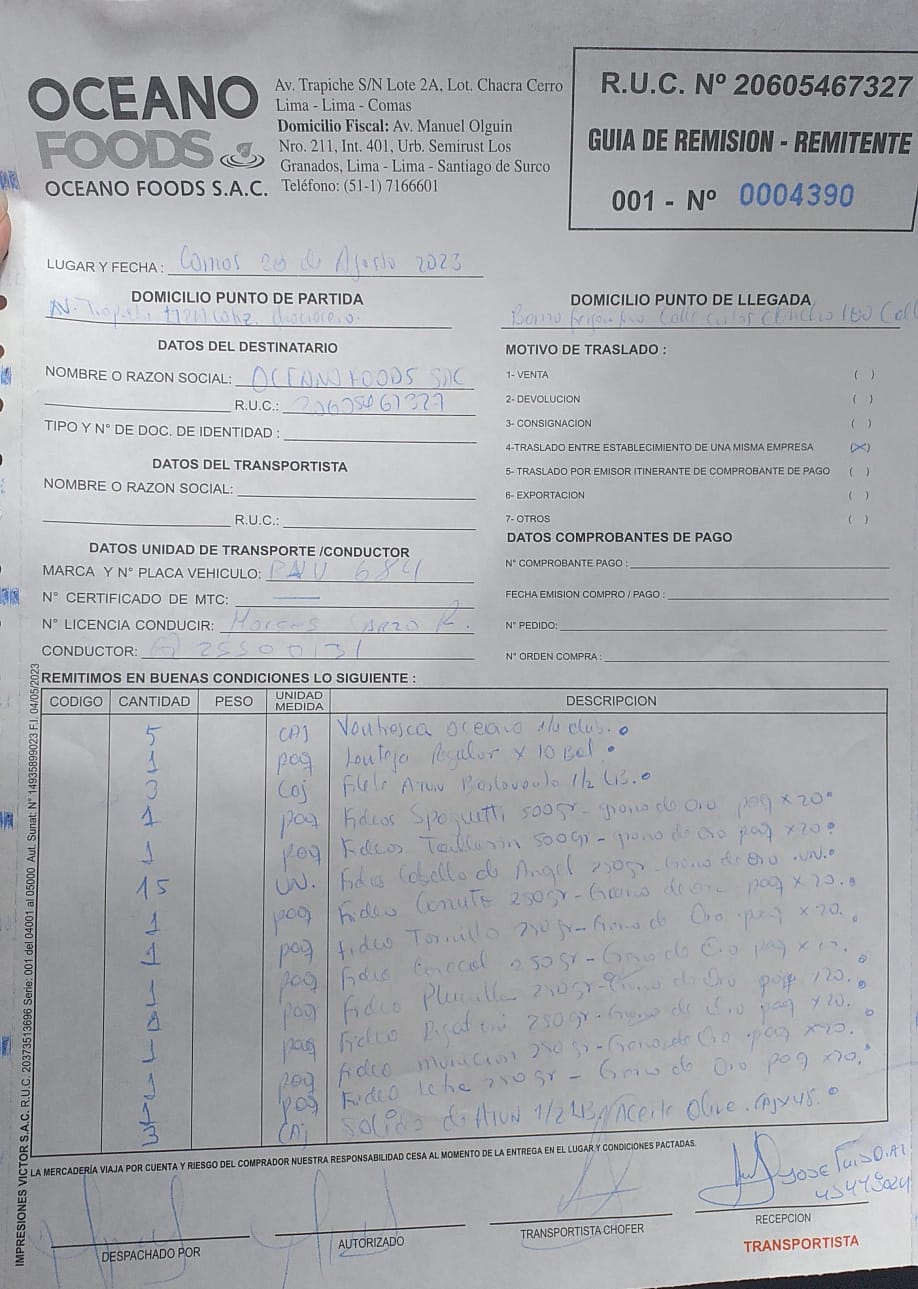 OCEANO
FOODS
OCEANO FOODS S.A.C.
Av. Trapiche S/N Lote 2A, Lot. Chacra Cerro
Lima - Lima - Comas
Domicilio Fiscal: Av. Manuel Olguin
Nro. 211, Int. 401, Urb. Semirust Los
Granados, Lima - Lima - Santiago de Surco
Teléfono: (51-1) 7166601
R.U.C. Nº 20605467327
GUIA DE REMISION - REMITENTE
001 - Nº 0004390
LUGAR Y FECHA : Comas 28 de Agosto 2023
DOMICILIO PUNTO DE PARTIDA
AV. Trapiche
DOMICILIO PUNTO DE LLEGADA
Calle 180
DATOS DEL DESTINATARIO
NOMBRE O RAZON SOCIAL: OCEANO FOODS SAC
R.U.C.: 20605467327
TIPO Y N° DE DOC. DE IDENTIDAD :
DATOS DEL TRANSPORTISTA
NOMBRE O RAZON SOCIAL:
R.U.C.:
DATOS UNIDAD DE TRANSPORTE /CONDUCTOR
MARCA Y N° PLACA VEHICULO: 684
N° CERTIFICADO DE MTC: —
N° LICENCIA CONDUCIR: R.
CONDUCTOR: Q 25500131
MOTIVO DE TRASLADO :
1- VENTA ( )
2- DEVOLUCION ( )
3- CONSIGNACION ( )
4-TRASLADO ENTRE ESTABLECIMIENTO DE UNA MISMA EMPRESA (X)
5- TRASLADO POR EMISOR ITINERANTE DE COMPROBANTE DE PAGO ( )
6- EXPORTACION ( )
7- OTROS ( )
DATOS COMPROBANTES DE PAGO
N° COMPROBANTE PAGO :
FECHA EMISION COMPRO / PAGO :
N° PEDIDO:
N° ORDEN COMPRA :
REMITIMOS EN BUENAS CONDICIONES LO SIGUIENTE :
CODIGO CANTIDAD PESO UNIDAD MEDIDA DESCRIPCION
5 CAJ Ventresca oceano
1 paq Lenteja Regular x 10
3 Caj Filete Atun 1/2 LB.
1 paq Fideos Spaguetti 500gr - grano de Oro paq x 20
1 paq Fideos Tallarin 500gr - grano de Oro paq x 20
15 UN. Fideo Cabello de Angel 250gr - Grano de Oro . UN.
1 paq Fideo Canuto 250gr - Grano de oro paq x 20.
1 paq Fideo Tornillo 250gr - Grano de Oro . paq x 20.
1 paq Fideo Caracol 250gr - Grano de Oro paq x
paq Fideo Plumilla 250gr - Grano de Oro paq x20.
1 paq Fideo Rigatoni 250gr - Grano de Oro paq x 20.
1 paq Fideo 250gr - Grano de Oro . paq x20.
paq Fideo 250gr - Grano de Oro paq x20.
3 CAJ Solido de Atun 1/2 LB. Aceite Oliva . CAJ x 48.
LA MERCADERÍA VIAJA POR CUENTA Y RIESGO DEL COMPRADOR NUESTRA RESPONSABILIDAD CESA AL MOMENTO DE LA ENTREGA EN EL LUGAR Y CONDICIONES PACTADAS.
JOSE
DESPACHADO POR
AUTORIZADO
TRANSPORTISTA CHOFER
RECEPCION
TRANSPORTISTA
IMPRESIONES VICTOR S.A.C. R.U.C. 20373513696 Serie: 001 del 04001 al 05000 Aut. Sunat: N° 14935899023 F.I. 04/05/2023